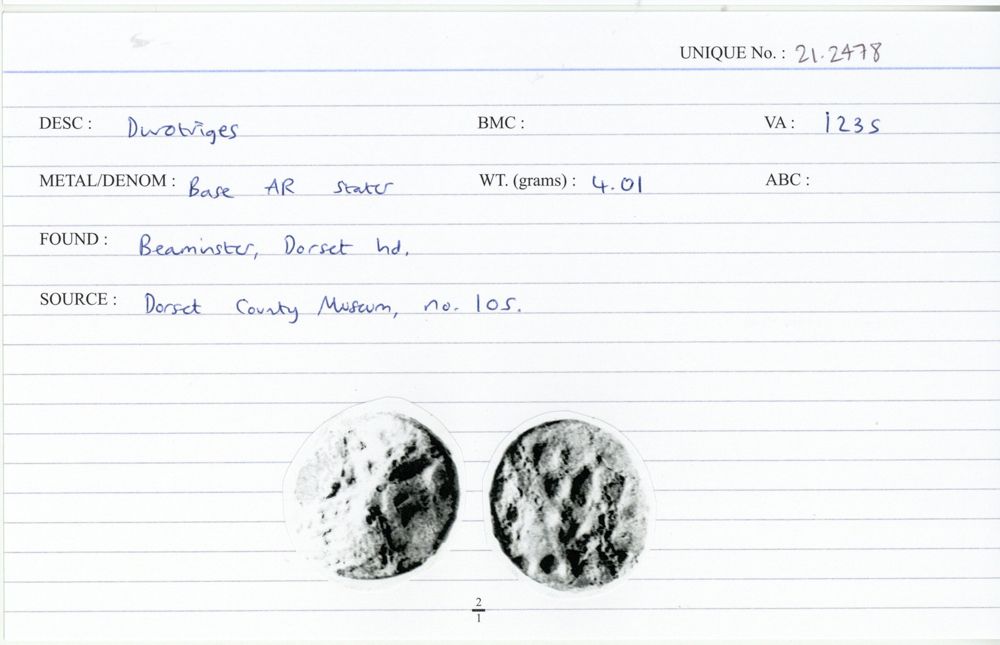 UNIQUE No. : 21.2478
DESC : Durotriges BMC : VA : 1235
METAL/DENOM : Base AR stater WT. (grams) : 4.01 ABC :
FOUND : Beaminster, Dorset hd.
SOURCE : Dorset County Museum, no. 105.
2
1